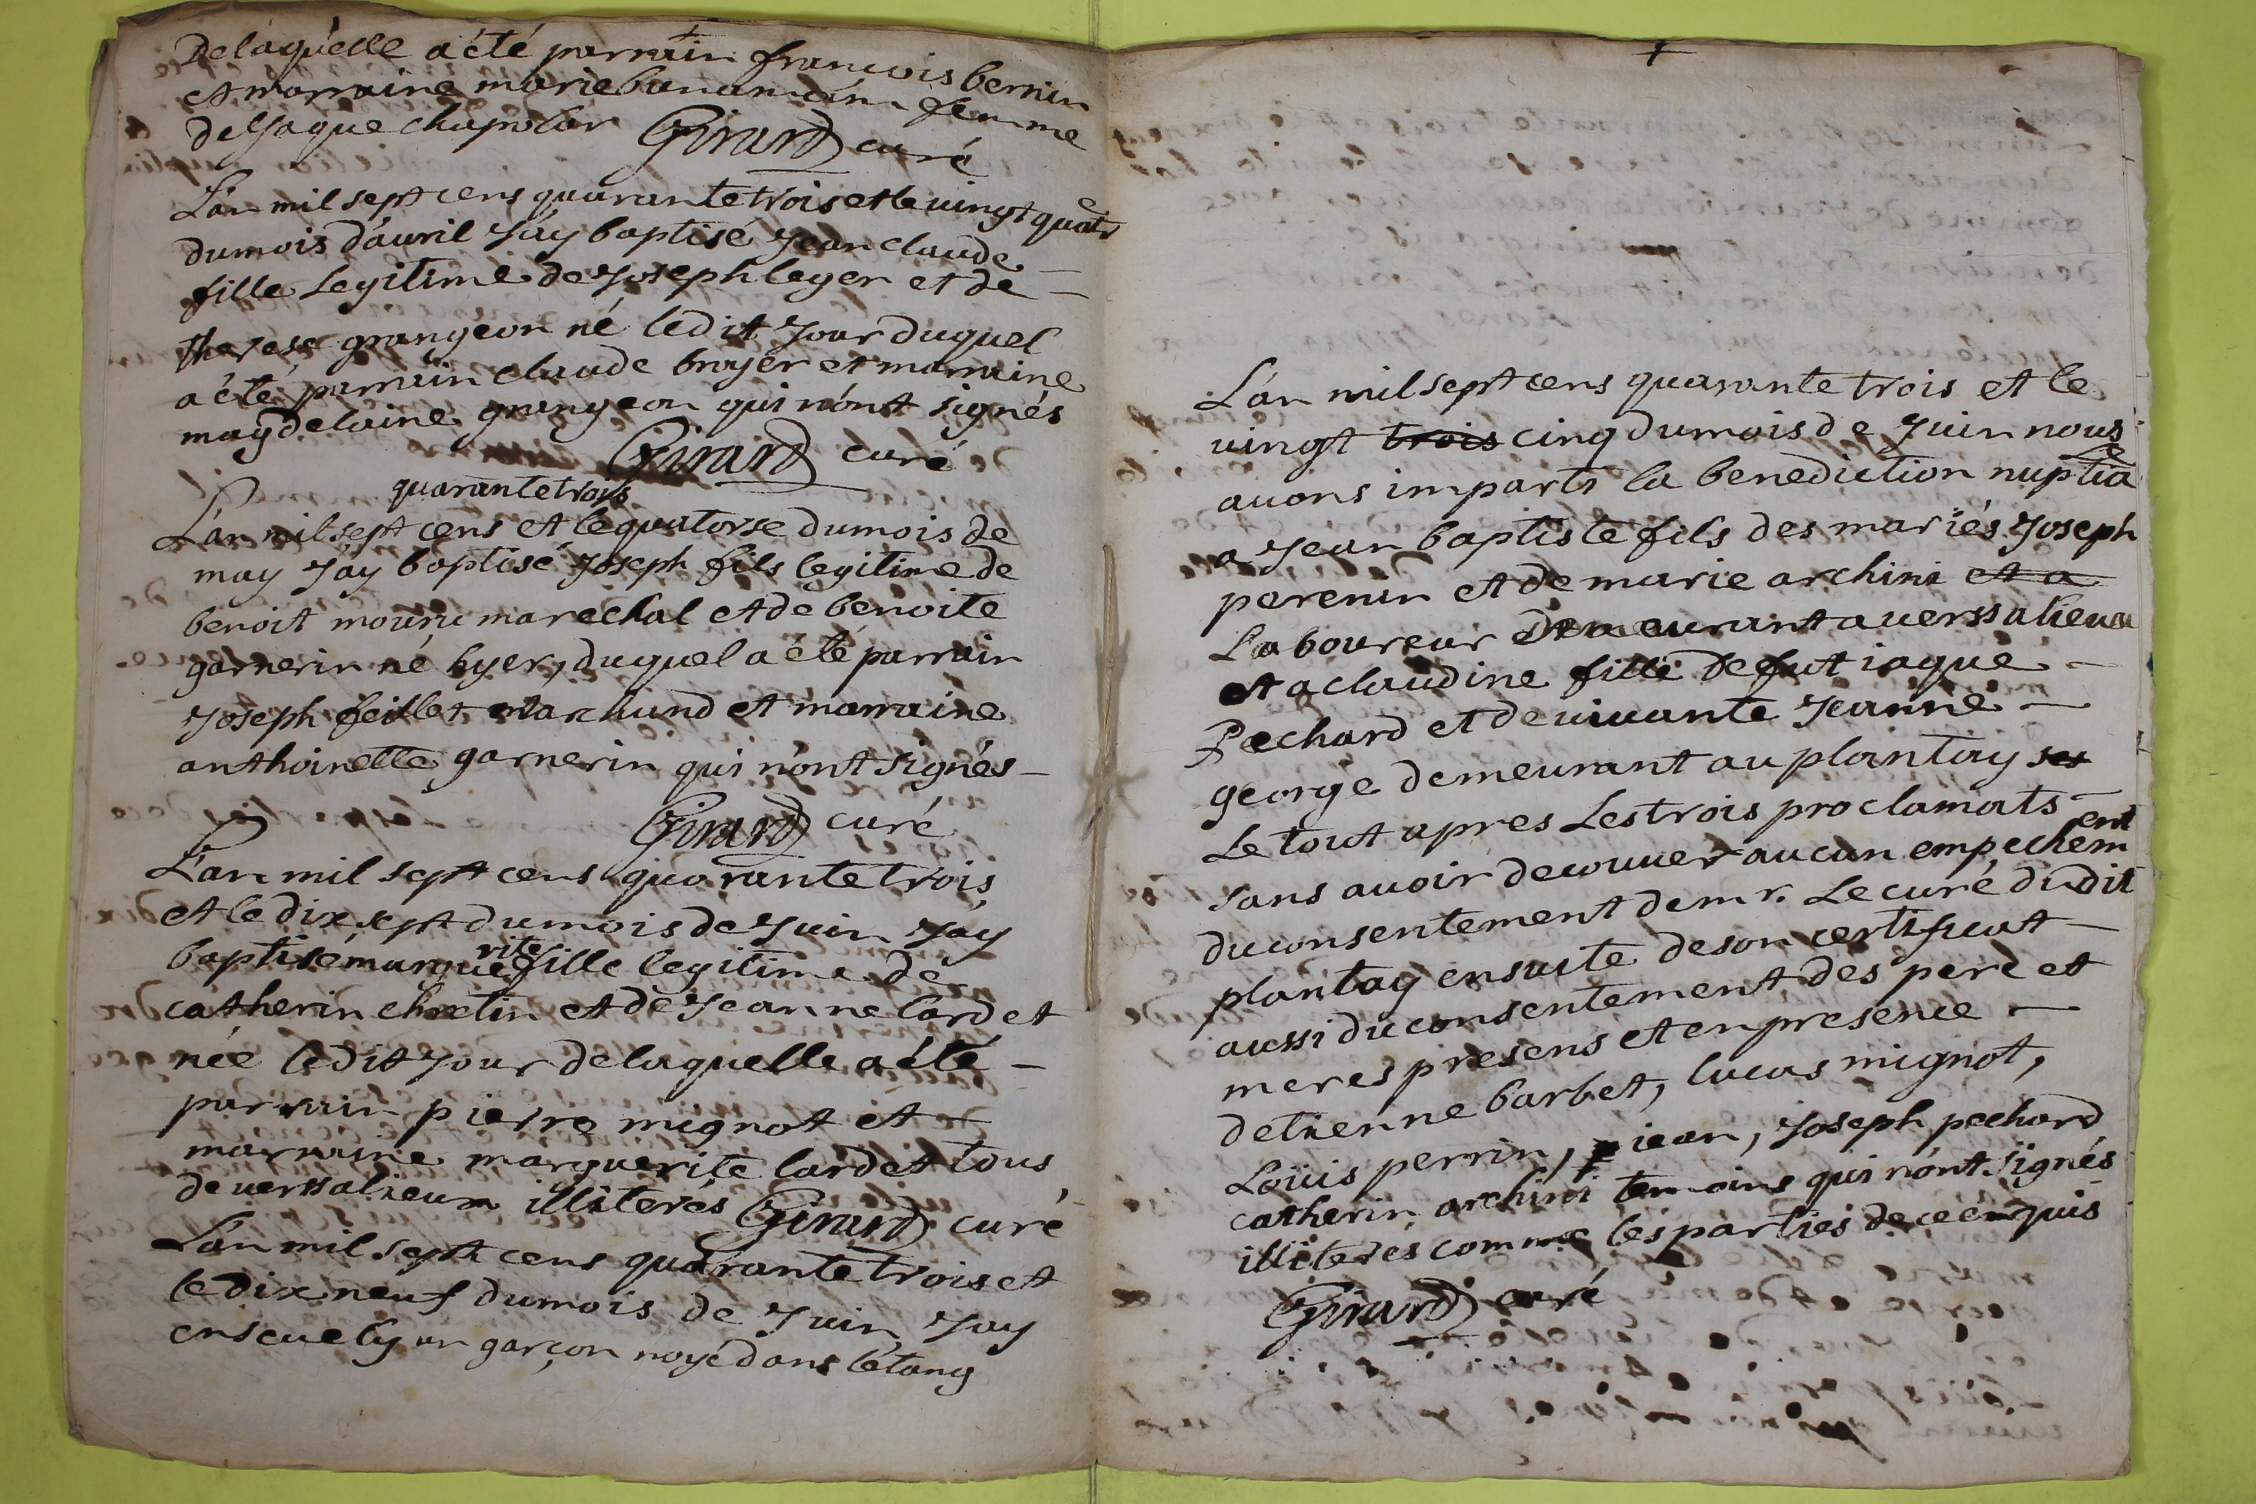 Delaquelle a été parrain francois bernin
et marraine marie femme
de Jaque chapolar Girard curé
L'an mil sept cens quarante trois et le vingt quatre
du mois d'auril J'ay baptisé Jean claude
fille Legitime de Joseph leger et de
therese grangeon né ledit Jour duquel
a été parrain claude broyer et marraine
maydelaine grangeon qui n'ont signés
Girard curé
quarante trois
L'an mil sept cens et le quatorse du mois de
may J'ay baptisé Joseph fils legitime de
benoit mourie marechal et de benoite
garnerin né hyer, duquel a été parrain
Joseph feillet marchand et marraine
anthoinette garnerin qui n'ont signés
Girard curé
L'an mil sept cens quarante trois
et le dix sept du mois de Juin J'ay
baptisé marguerite fille legitime de
catherin chretin et de Jeanne lardet
née ledit Jour delaquelle a été
parrain pierre mignot et
marraine marguerite lardet tous
de verssalieux illiterés Girard curé
L'an mil sept cens quarante trois et
le dix neuf du mois de Juin J'ay
ensevely un garçon noyé dans létang
L'an mil sept cens quarante trois et le
vingt trois cinq du mois de Juin nous
auons imparti la benediction nuptiale
a Jean baptiste fils des mariés Joseph
perenin et de marie archini et a
Laboureur demeurant a verssalieux
et a claudine fille de fut iaque
Pechard et de uiuante Jeanne
george demeurant au plantay ses
Le tout apres Les trois proclamats
sans auoir decouuer aucun empechement
du consentement de mr. Le curé dudit
plantay ensuite de son certificat
aussi du consentement des pere et
meres presens et en presence
detienne barbet, lucas mignot,
Loüis perrin, iean, Joseph pechard
catherin archini temoins qui n'ont signés
illiterés comme les parties de ce enquis
Girard curé